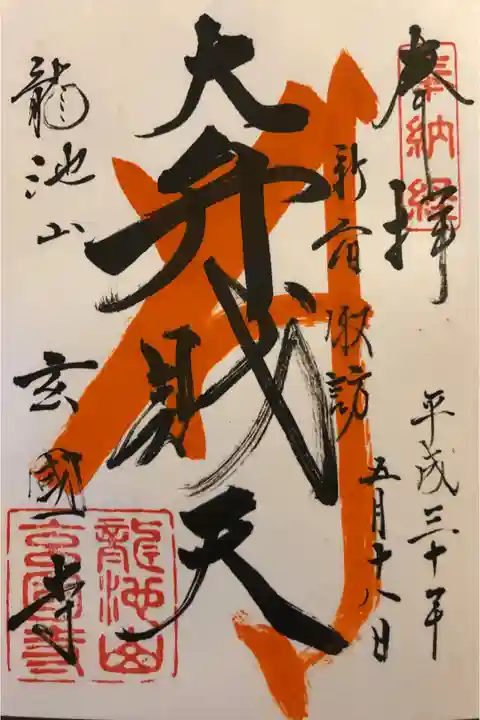 奉拝
奉納経
新宿諏訪
平成三十年
五月十八日
大弁財天
龍池山 玄國寺
龍池山
玄國寺